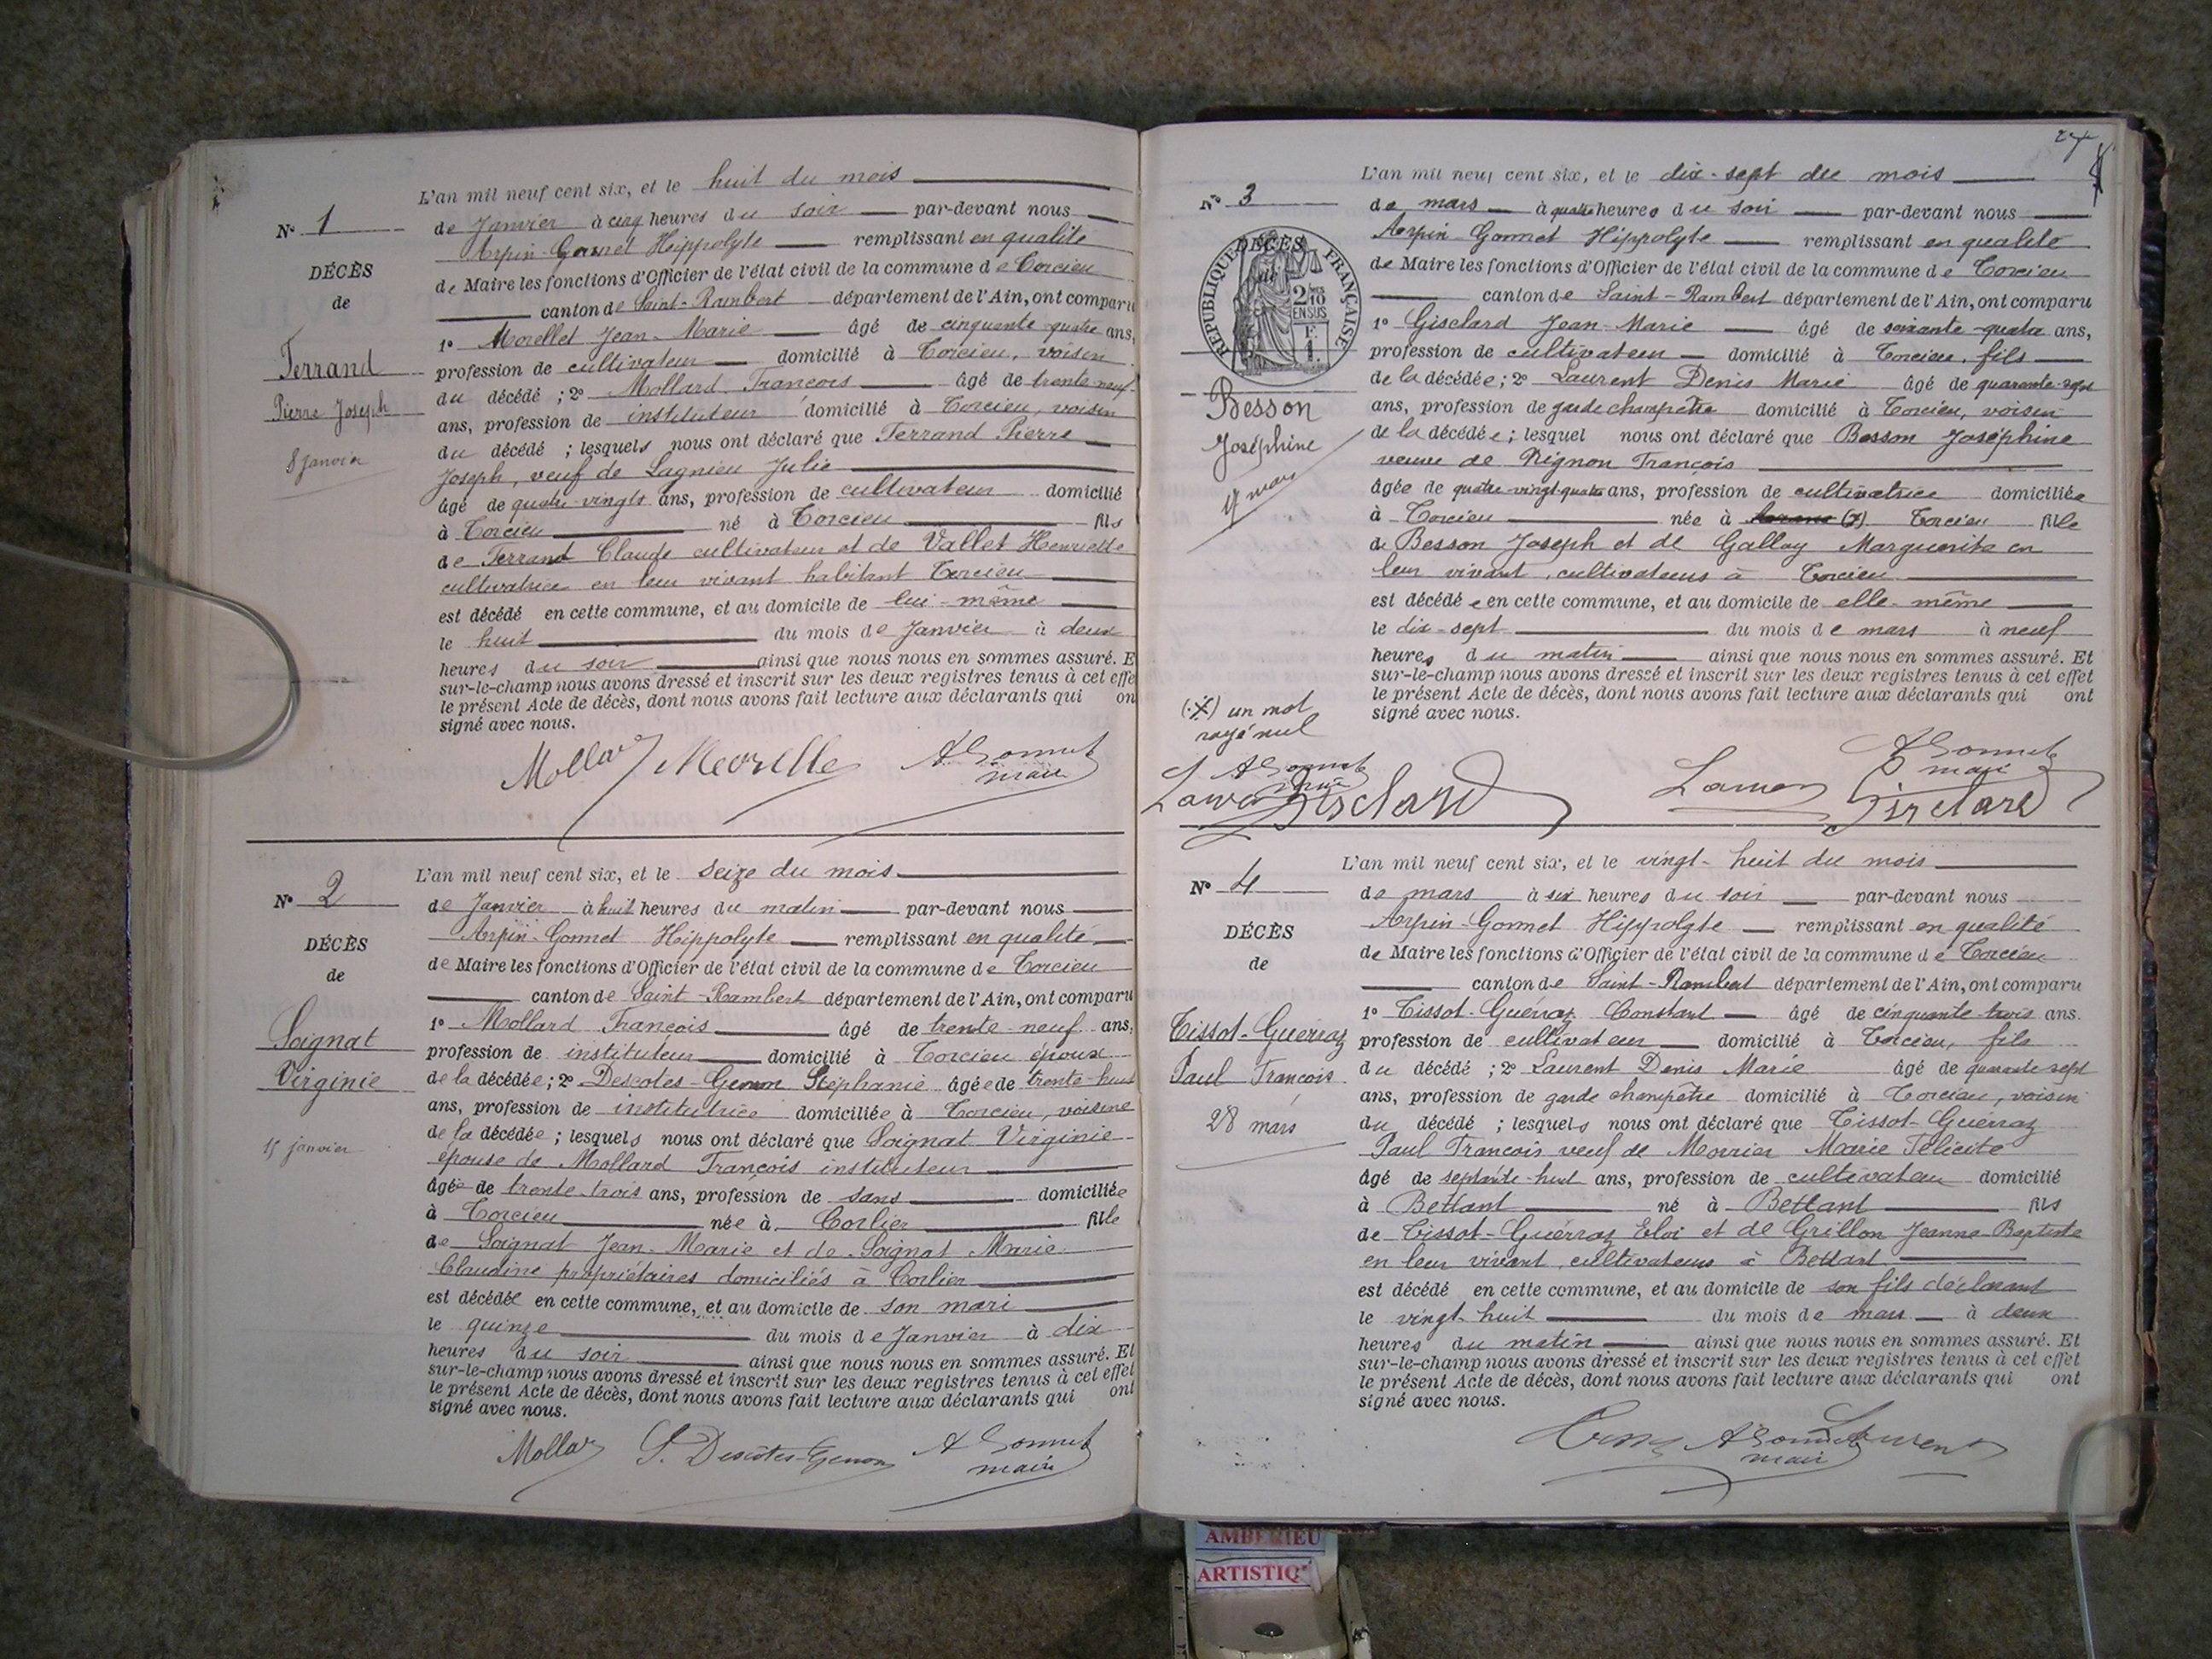 L'an mil neuf cent six, et le huit du mois
N° 1
de Janvier à cinq heures du soir par-devant nous
Arpin-Gonnet Hippolyte remplissant en qualité
DÉCÈS
de Maire les fonctions d'Officier de l'état civil de la commune de Torcieu
de
canton de Saint-Rambert département de l'Ain, ont comparu
1° Morellet Jean-Marie âgé de cinquante quatre ans,
Ferrand
profession de cultivateur domicilié à Torcieu, voisin
Pierre Joseph
du décédé ; 2° Mollard François âgé de trente-neuf
ans, profession de instituteur domicilié à Torcieu, voisin
8 janvier
du décédé ; lesquels nous ont déclaré que Ferrand Pierre
Joseph, veuf de Lagnieu Julie
âgé de quatre-vingts ans, profession de cultivateur domicilié
à Torcieu né à Torcieu fils
de Ferrand Claude cultivateur et de Vallet Henriette
cultivatrice en leur vivant habitant Torcieu
est décédé en cette commune, et au domicile de lui-même
le huit du mois de Janvier à deux
heures du soir ainsi que nous nous en sommes assuré. E
sur-le-champ nous avons dressé et inscrit sur les deux registres tenus à cet effe
le présent Acte de décès, dont nous avons fait lecture aux déclarants qui on
signé avec nous.
Mollard Morelle AGonnet
maire
L'an mil neuf cent six, et le seize du mois
N° 2
de Janvier à huit heures du matin par-devant nous
Arpin-Gonnet Hippolyte remplissant en qualité
DÉCÈS
de Maire les fonctions d'Officier de l'état civil de la commune de Torcieu
de
canton de Saint-Rambert département de l'Ain, ont comparu
1° Mollard François âgé de trente-neuf ans,
Soignat
profession de instituteur domicilié à Torcieu époux
Virginie
de la décédée ; 2° Descotes-Genon Stéphanie âgée de trente-huit
ans, profession de institutrice domiciliée à Torcieu, voisine
15 janvier
de la décédée ; lesquels nous ont déclaré que Soignat Virginie
épouse de Mollard François instituteur
âgée de trente-trois ans, profession de sans domiciliée
à Torcieu née à Corlier fille
de Soignat Jean-Marie et de Soignat Marie
Claudine propriétaires domiciliés à Corlier
est décédée en cette commune, et au domicile de son mari
le quinze du mois de Janvier à dix
heures du soir ainsi que nous nous en sommes assuré. Et
sur-le-champ nous avons dressé et inscrit sur les deux registres tenus à cet effet
le présent Acte de décès, dont nous avons fait lecture aux déclarants qui ont
signé avec nous.
Mollard S. Descotes-Genon AGonnet
maire
27
L'an mil neuf cent six, et le dix-sept du mois
N° 3
de mars à quatre heures du soir par-devant nous
Arpin-Gonnet Hippolyte remplissant en qualité
DÉCÈS
RÉPUBLIQUE FRANÇAISE
2/10 EN SUS
de Maire les fonctions d'Officier de l'état civil de la commune de Torcieu
canton de Saint-Rambert département de l'Ain, ont comparu
1° Gisclard Jean-Marie âgé de soixante-quatre ans,
profession de cultivateur domicilié à Torcieu, fils
de la décédée ; 2° Laurent Denis Marie âgé de quarante-sept
Besson
ans, profession de garde champêtre domicilié à Torcieu, voisin
Joséphine
de la décédée ; lesquel nous ont déclaré que Besson Joséphine
17 mars
veuve de Pignon François
âgée de quatre-vingt-quatre ans, profession de cultivatrice domiciliée
à Torcieu née à (x) Torcieu fille
de Besson Joseph et de Galloy Marguerite en
leur vivant, cultivateurs à Torcieu
est décédée en cette commune, et au domicile de elle-même
le dix-sept du mois de mars à neuf
heures du matin ainsi que nous nous en sommes assuré. Et
sur-le-champ nous avons dressé et inscrit sur les deux registres tenus à cet effet
le présent Acte de décès, dont nous avons fait lecture aux déclarants qui ont
signé avec nous.
(x) un mot
rayé nul
AGonnet
maire
Gisclard
AGonnet
maire
Gisclard
L'an mil neuf cent six, et le vingt-huit du mois
N° 4
de mars à six heures du soir par-devant nous
Arpin-Gonnet Hippolyte remplissant en qualité
DÉCÈS
de Maire les fonctions d'Officier de l'état civil de la commune de Torcieu
de
canton de Saint-Rambert département de l'Ain, ont comparu
1° Tissot-Guérraz Constant âgé de cinquante trois ans.
Tissot-Guerraz
profession de cultivateur domicilié à Torcieu, fils
Paul François
du décédé ; 2° Laurent Denis Marie âgé de quarante sept
ans, profession de garde champêtre domicilié à Torcieu, voisin
28 mars
du décédé ; lesquels nous ont déclaré que Tissot-Guérraz
Paul François veuf de Morrier Marie Félicité
âgé de septante-huit ans, profession de cultivateur domicilié
à Bettant né à Bettant fils
de Tissot-Guérraz Eloi et de Grillon Jeanne-Baptiste
en leur vivant, cultivateurs à Bettant
est décédé en cette commune, et au domicile de son fils déclarant
le vingt-huit du mois de mars à deux
heures du matin ainsi que nous nous en sommes assuré. Et
sur-le-champ nous avons dressé et inscrit sur les deux registres tenus à cet effet
le présent Acte de décès, dont nous avons fait lecture aux déclarants qui ont
signé avec nous.
AGonnet Laurent
maire
AMBERIEU
ARTISTIQ